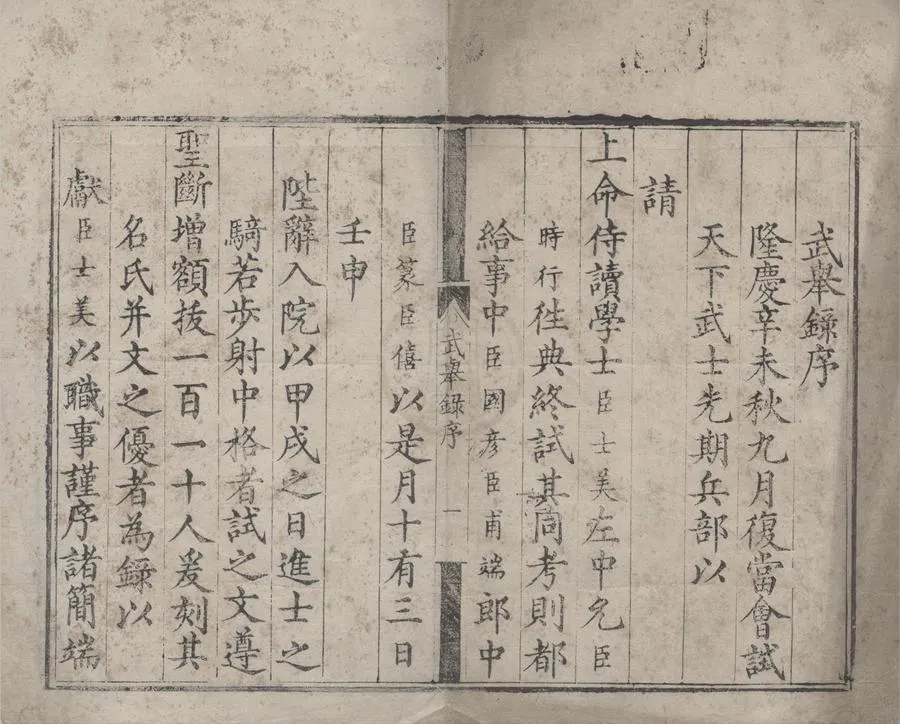 武舉錄序
隆慶辛未秋九月復當會試
天下武士先期兵部以
請
上命侍讀學士臣士美左中允臣
時行徃典終試其同考則都
給事中臣國彥臣甫端郎中
臣篆臣僖以是月十有三日
壬申
武舉錄序 一
陛辭入院以甲戌之日進士之
騎若步射中格者試之文遵
聖斷增額拔一百一十人爰刻其
名氏并文之優者為錄以
獻臣士美以職事謹序諸簡端